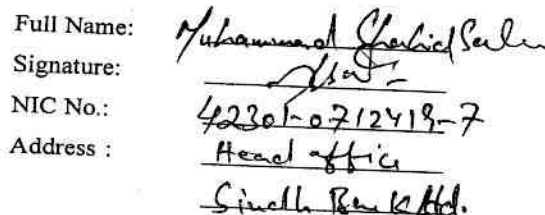 Full Name: Muhammad Shahid
Signature:
NIC No.: 42301-0712419-7
Address : Head office
Sindh Bank Ltd.